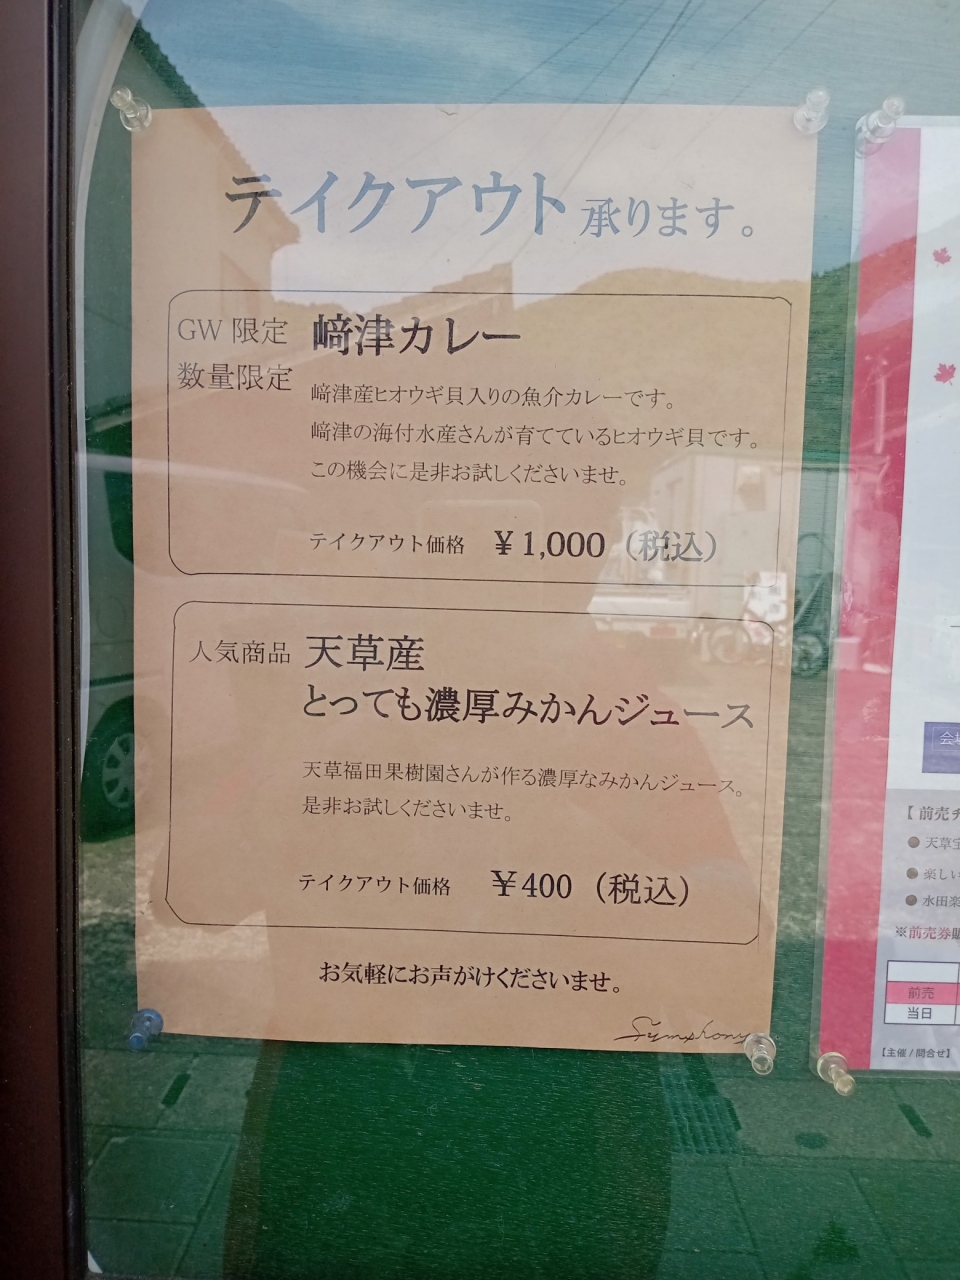 テイクアウト 承ります。
GW 限定
数量限定
﨑津カレー
﨑津産ヒオウギ貝入りの魚介カレーです。
﨑津の海付水産さんが育てているヒオウギ貝です。
この機会に是非お試しくださいませ。
テイクアウト価格 ￥1,000（税込）
人気商品
天草産
とっても濃厚みかんジュース
天草福田果樹園さんが作る濃厚なみかんジュース。
是非お試しくださいませ。
テイクアウト価格 ￥400（税込）
お気軽にお声がけくださいませ。
Symphony
会場
【 前売チ
● 天草宝
● 楽しい
● 水田楽
※前売券販
前売
当日
【主催 / 問合せ】